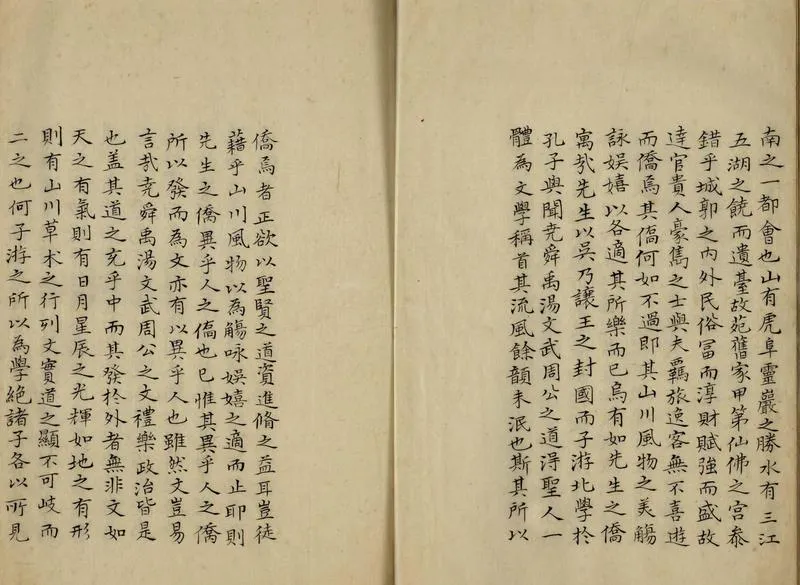 南之一都會也山有虎阜靈巖之勝水有三江
五湖之饒而遺臺故苑舊家甲第仙佛之宮叅
錯乎城郭之內外民俗冨而淳財賦強而盛故
達官貴人豪雋之士與夫羈旅逸客無不喜遊
而僑焉其僑何如不過即其山川風物之美觴
詠娱嬉以各適其所樂而已烏有如先生之僑
寓㢤先生以吳乃讓王之封國而子游北學於
孔子與聞尭舜禹湯文武周公之道淂聖人一
體為文學稱首其流風餘韻未泯也斯其所以
僑焉者正欲以聖賢之道資進脩之益耳豈徒
藉乎山川風物以為觴咏娱嬉之適而止耶則
先生之僑異乎人之僑也已惟其異乎人之僑
所以發而為文亦有以異乎人也雖然文豈易
言㢤尭舜禹湯文武周公之文禮樂政治皆是
也盖其道之充乎中而其發於外者無非文如
天之有氣則有日月星辰之光輝如地之有形
則有山川草木之行列文實道之顯不可岐而
二之也何子游之所以為學絶諸子各以所見